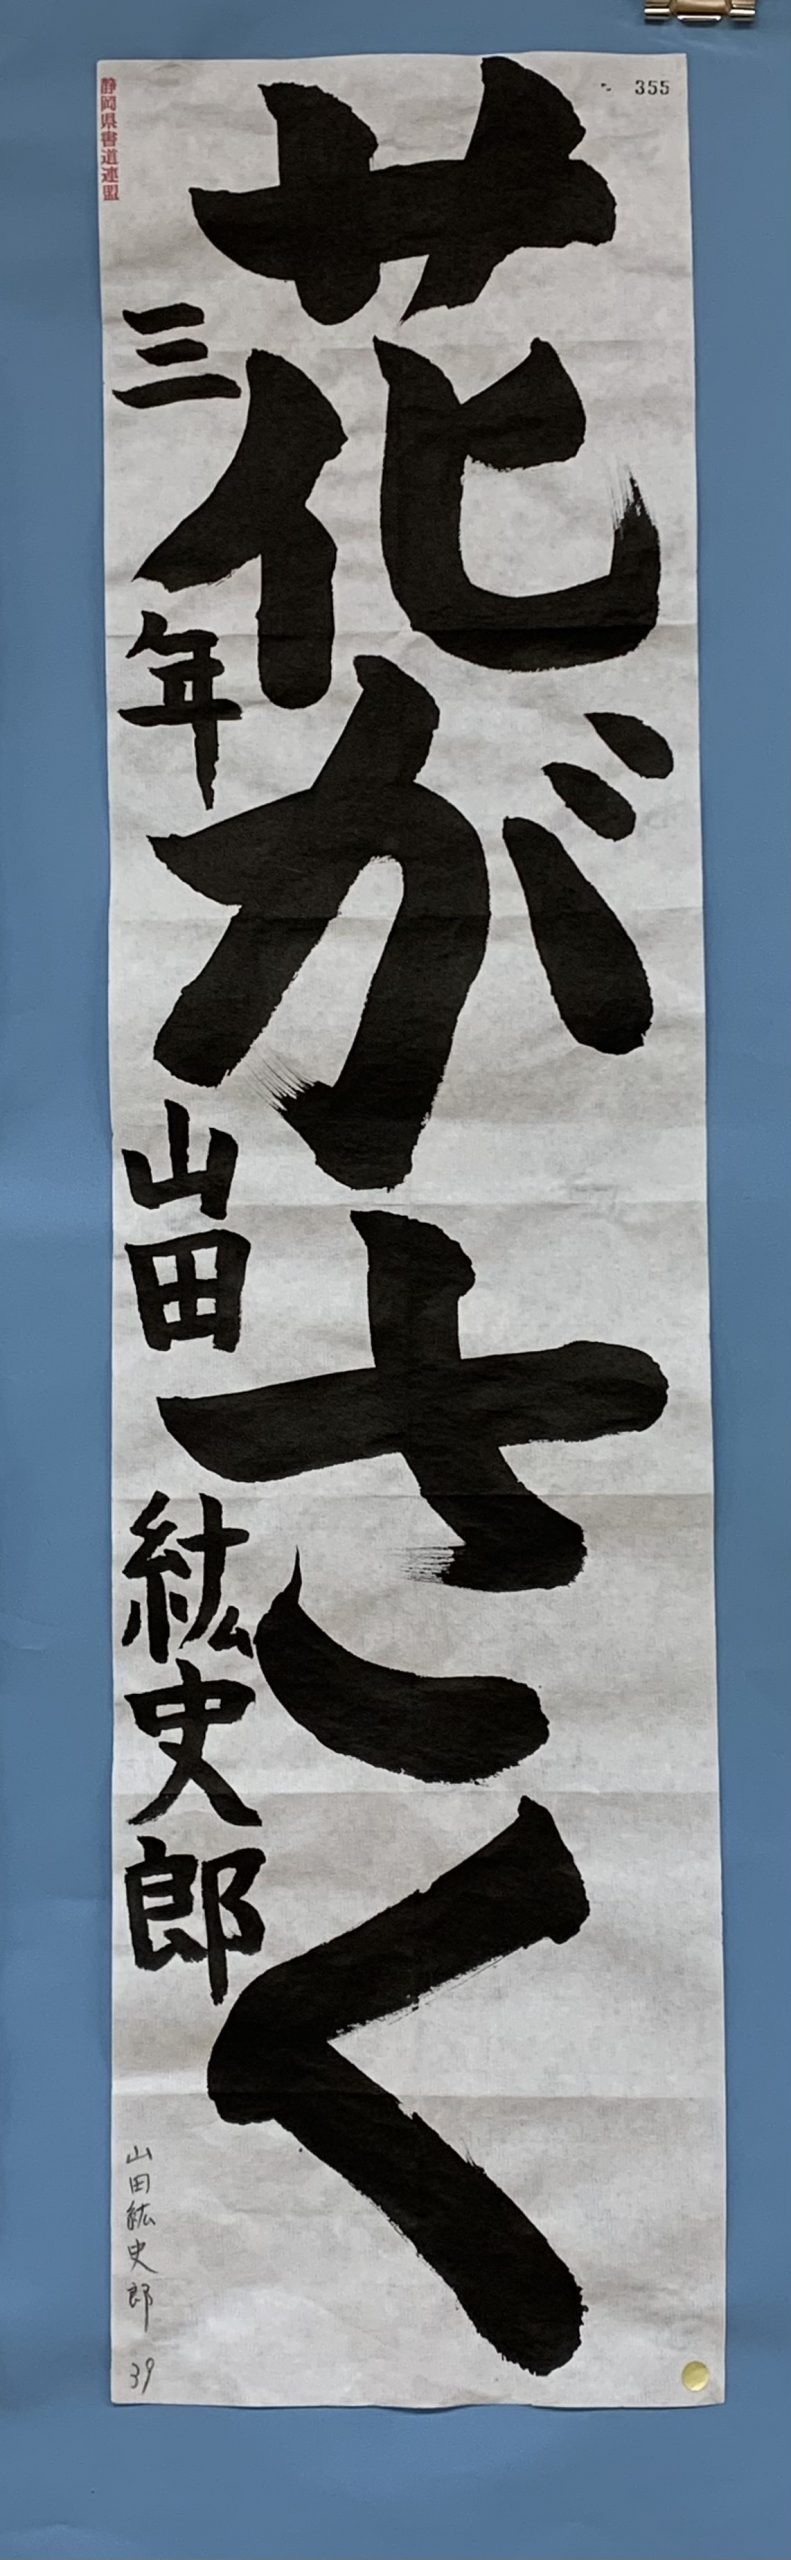 355
花がさく
三年 山田 紘史郎
静岡県書道連盟
山田紘史郎 39